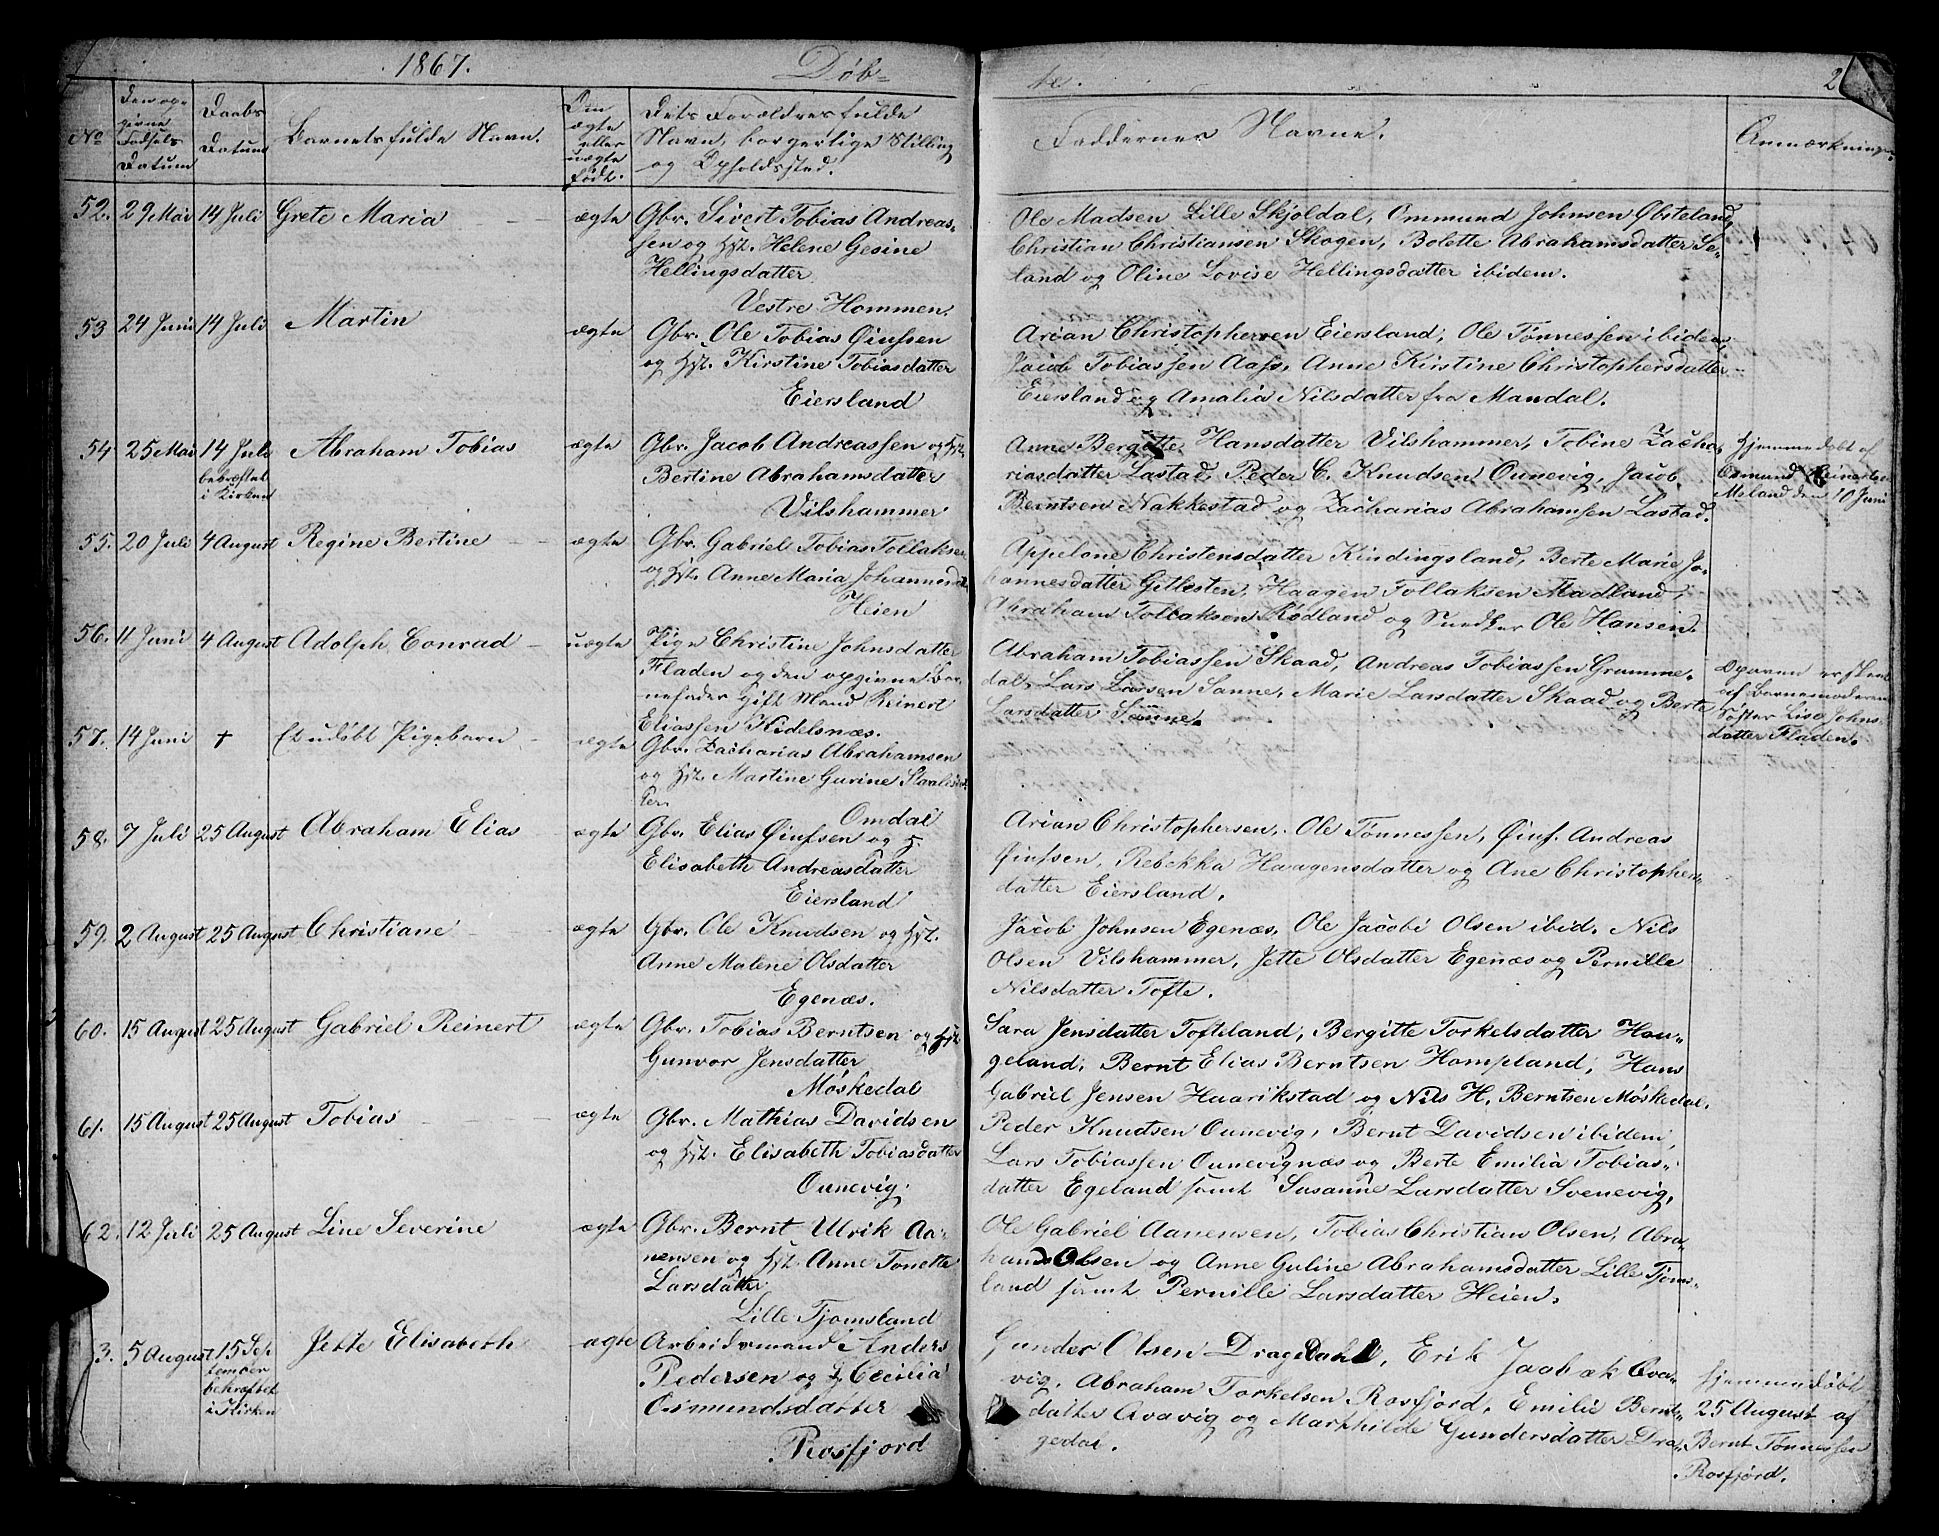 1867.
Døb-
No
Den op-
givne
Fødsels
Datum
Daabs
Datum
Barnets fulde Navn.
Om
ægte
eller
uægte
født.
Dets Forældres fulde
Navn, borgerlige Stilling
og Opholdssted.
52. 29 Mai 14 Juli Grete Maria ægte Gbr. Sivert Tobias Andreas-
sen og Hst. Helene Gesine
Hellingsdatter
Vestre Hommen.
53 24 Juni 14 Juli Martin ægte Gbr. Ole Tobias Øiufsen
og Hst. Kirstine Tobiasdatter
Eiersland
54 25 Mai 14 Juli Abraham Tobias ægte Gbr. Jacob Andreassen og Hst.
bekræftet
i Kirken
Bertine Abrahamsdatter
Vilshammer
55. 20 Juli 4 August Regine Bertine ægte Gbr. Gabriel Tobias Tollaksen
og Hst. Anne Maria Johannesd.
Heien
56. 11 Juni 4 August Adolph Conrad uægte Pige Christine Johnsdatter
Fladen og den opgivne Bar-
nefader Gift Mand Reinert
Eliassen Kidelsnæs.
57. 14 Juni + Et udøbt Pigebarn ægte Gbr. Zacharias Abrahamsen
og Hst. Martine Gurine
ter
Omdal
58. 7 Juli 25 August Abraham Elias ægte Gbr. Elias Øiufsen og H.
Elisabeth Andreasdatter
Eiersland
59. 2 August 25 August Christiane ægte Gbr. Ole Knudsen og Hst.
Anne Malene Olsdatter
Egenæs.
60. 15 August 25 August Gabriel Reinert ægte Gbr. Tobias Berntsen og Hst.
Gunvor Jensdatter
Møskedal
61. 15 August 25 August Tobias ægte Gbr. Mathias Davidsen
og Hst. Elisabeth Tobiasdatter
Ounevig.
62. 12 Juli 25 August Line Severine ægte Gbr. Bernt Ulrik Aa-
nensen og Hst. Anne Tonette
Larsdatter
Lille Tjomsland
3. 5 August 15 Sep Jette Elisabeth ægte Arbeidsmand Anders
tember
bekræftet
i Kirken
Pedersen og H. Cecilia
Osmundsdatter
Rosfjord
te.
2
Faddernes Navne.
Anmærkninger
Ole Madsen Lille Skjoldal, Ommund Johnsen Øbsteland,
Christian Christiansen Skogen, Bolette Abrahamsdatter Se-
land og Oline Lovise Hellingsdatter ibidem.
Arian Christophersen Eiersland, Ole Tønnessen ibidem,
Jacob Tobiassen Aass, Anne Kirstine Christophersdatter
Eiersland og Amalia Nilsdatter fra Mandal.
Anne Bergitte Hansdatter Vilshammer, Tobine Zacha-
riasdatter Lastad, Peder C. Knudsen Ounevig, Jacob
Berntsen Nakkestad og Zacharias Abrahamsen Lastad.
Hjemmedøbt af
Osmund Reinertsen
Meland den 10 Juni
Appelone Christensdatter Kindingsland, Berte Marie Jo-
hannesdatter Gitlesten, Haagen Tollaksen Madland,
Abraham Tollaksen Rødland og Snedker Ole Hansen.
Abraham Tobiassen Skaad, Andreas Tobiassen Gramme-
dal, Lars Larsen Sanne, Marie Larsdatter Skaad og Berte
Larsdatter Sanne.
af Barnemoderens
Søster Lise Johns-
datter Fladen.
Arian Christophersen, Ole Tønnessen, Øiuf. Andreas
Øiufsen, Rebekka Haagensdatter og Ane Christophers-
datter Eiersland.
Jacob Johnsen Egenæs, Ole Jacobi Olsen ibid. Nils
Olsen Vilshammer, Jette Olsdatter Egenæs og Pernille
Nilsdatter Tofte.
Sara Jensdatter Tofteland, Bergitte Torkelsdatter Hau-
geland, Bernt Elias Berntsen Hompland, Hans
Gabriel Jensen Haarikstad og Nils H. Berntsen Møskedal.
Peder Knudsen Ounevig, Bernt Davidsen ibidem,
Lars Tobiassen Ounevignæs og Berte Emilia Tobias-
datter Egeland samt Susanne Larsdatter Svenevig,
Ole Gabriel Aanensen, Tobias Christian Olsen, Abra-
ham Olsen og Anne Guline Abrahamsdatter Lille Tjoms-
land samt Pernille Larsdatter Heien.
Gunder Olsen Dragedahl, Erik Qva-
vig, Abraham Torkelsen Rosfjord, Emilie Bernt-
datter Qvavig og Markhilde Gundersdatter Dra-
gedal.
Hjemmedøbt
25 August af
Bernt Tønnessen
Rosfjord.